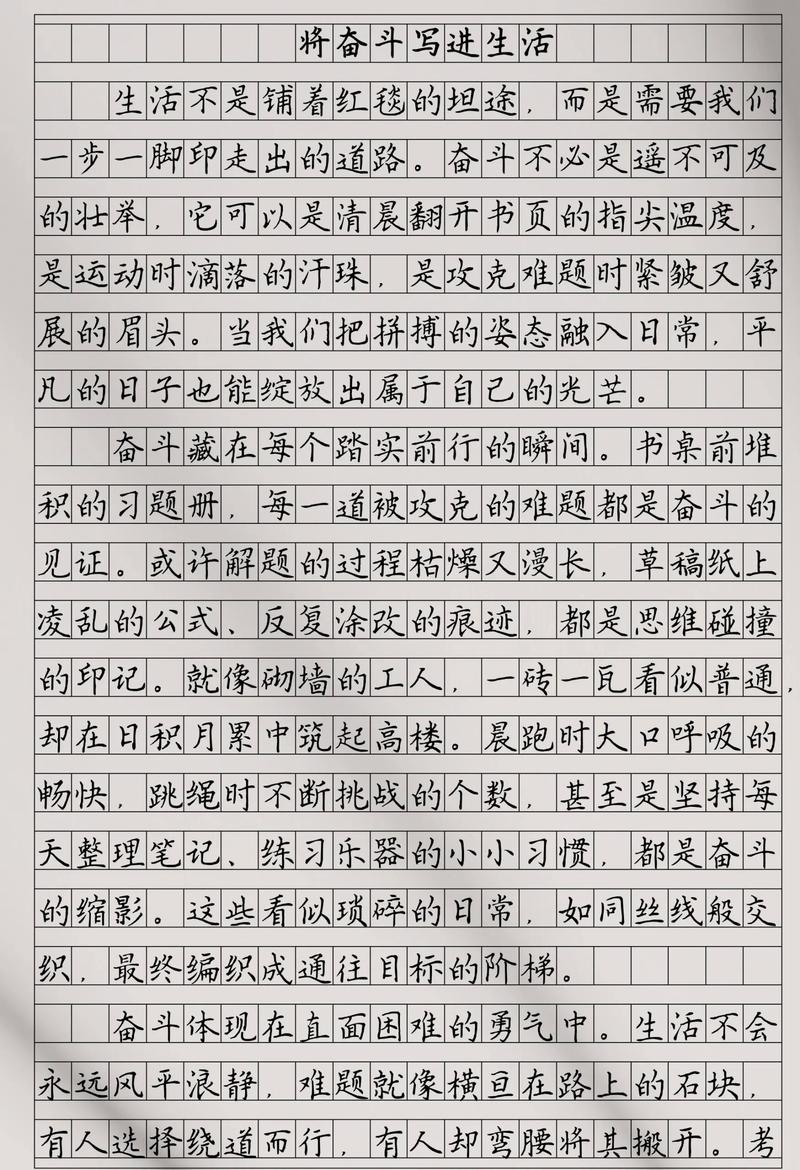 将奋斗写进生活
生活不是铺着红毯的坦途，而是需要我们
一步一脚印走出的道路。奋斗不必是遥不可及
的壮举，它可以是清晨翻开书页的指尖温度，
是运动时滴落的汗珠，是攻克难题时紧皱又舒
展的眉头。当我们把拼搏的姿态融入日常，平
凡的日子也能绽放出属于自己的光芒。
奋斗藏在每个踏实前行的瞬间。书桌前堆
积的习题册，每一道被攻克的难题都是奋斗的
见证。或许解题的过程枯燥又漫长，草稿纸上
凌乱的公式、反复涂改的痕迹，都是思维碰撞
的印记。就像砌墙的工人，一砖一瓦看似普通，
却在日积月累中筑起高楼。晨跑时大口呼吸的
畅快，跳绳时不断挑战的个数，甚至是坚持每
天整理笔记、练习乐器的小小习惯，都是奋斗
的缩影。这些看似琐碎的日常，如同丝线般交
织，最终编织成通往目标的阶梯。
奋斗体现在直面困难的勇气中。生活不会
永远风平浪静，难题就像横亘在路上的石块，
有人选择绕道而行，有人却弯腰将其搬开。考